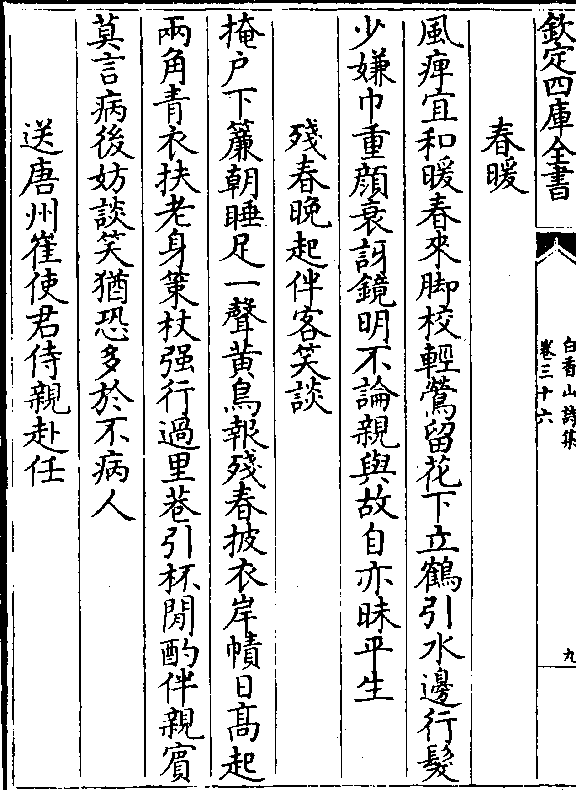 欽定四庫全書
白香山詩集
卷三十六
九
春暖
風痺宜和暖春來脚校輕鶯留花下立鶴引水邊行髮
少嫌巾重顔衰訝鏡明不論親與故自亦昧平生
殘春晚起伴客笑談
掩户下簾朝睡足一聲黄鳥報殘春披衣岸幘日髙起
兩角青衣扶老身策杖强行過里巷引杯閒酌伴親賔
莫言病後妨談笑猶恐多於不病人
送唐州崔使君侍親赴任